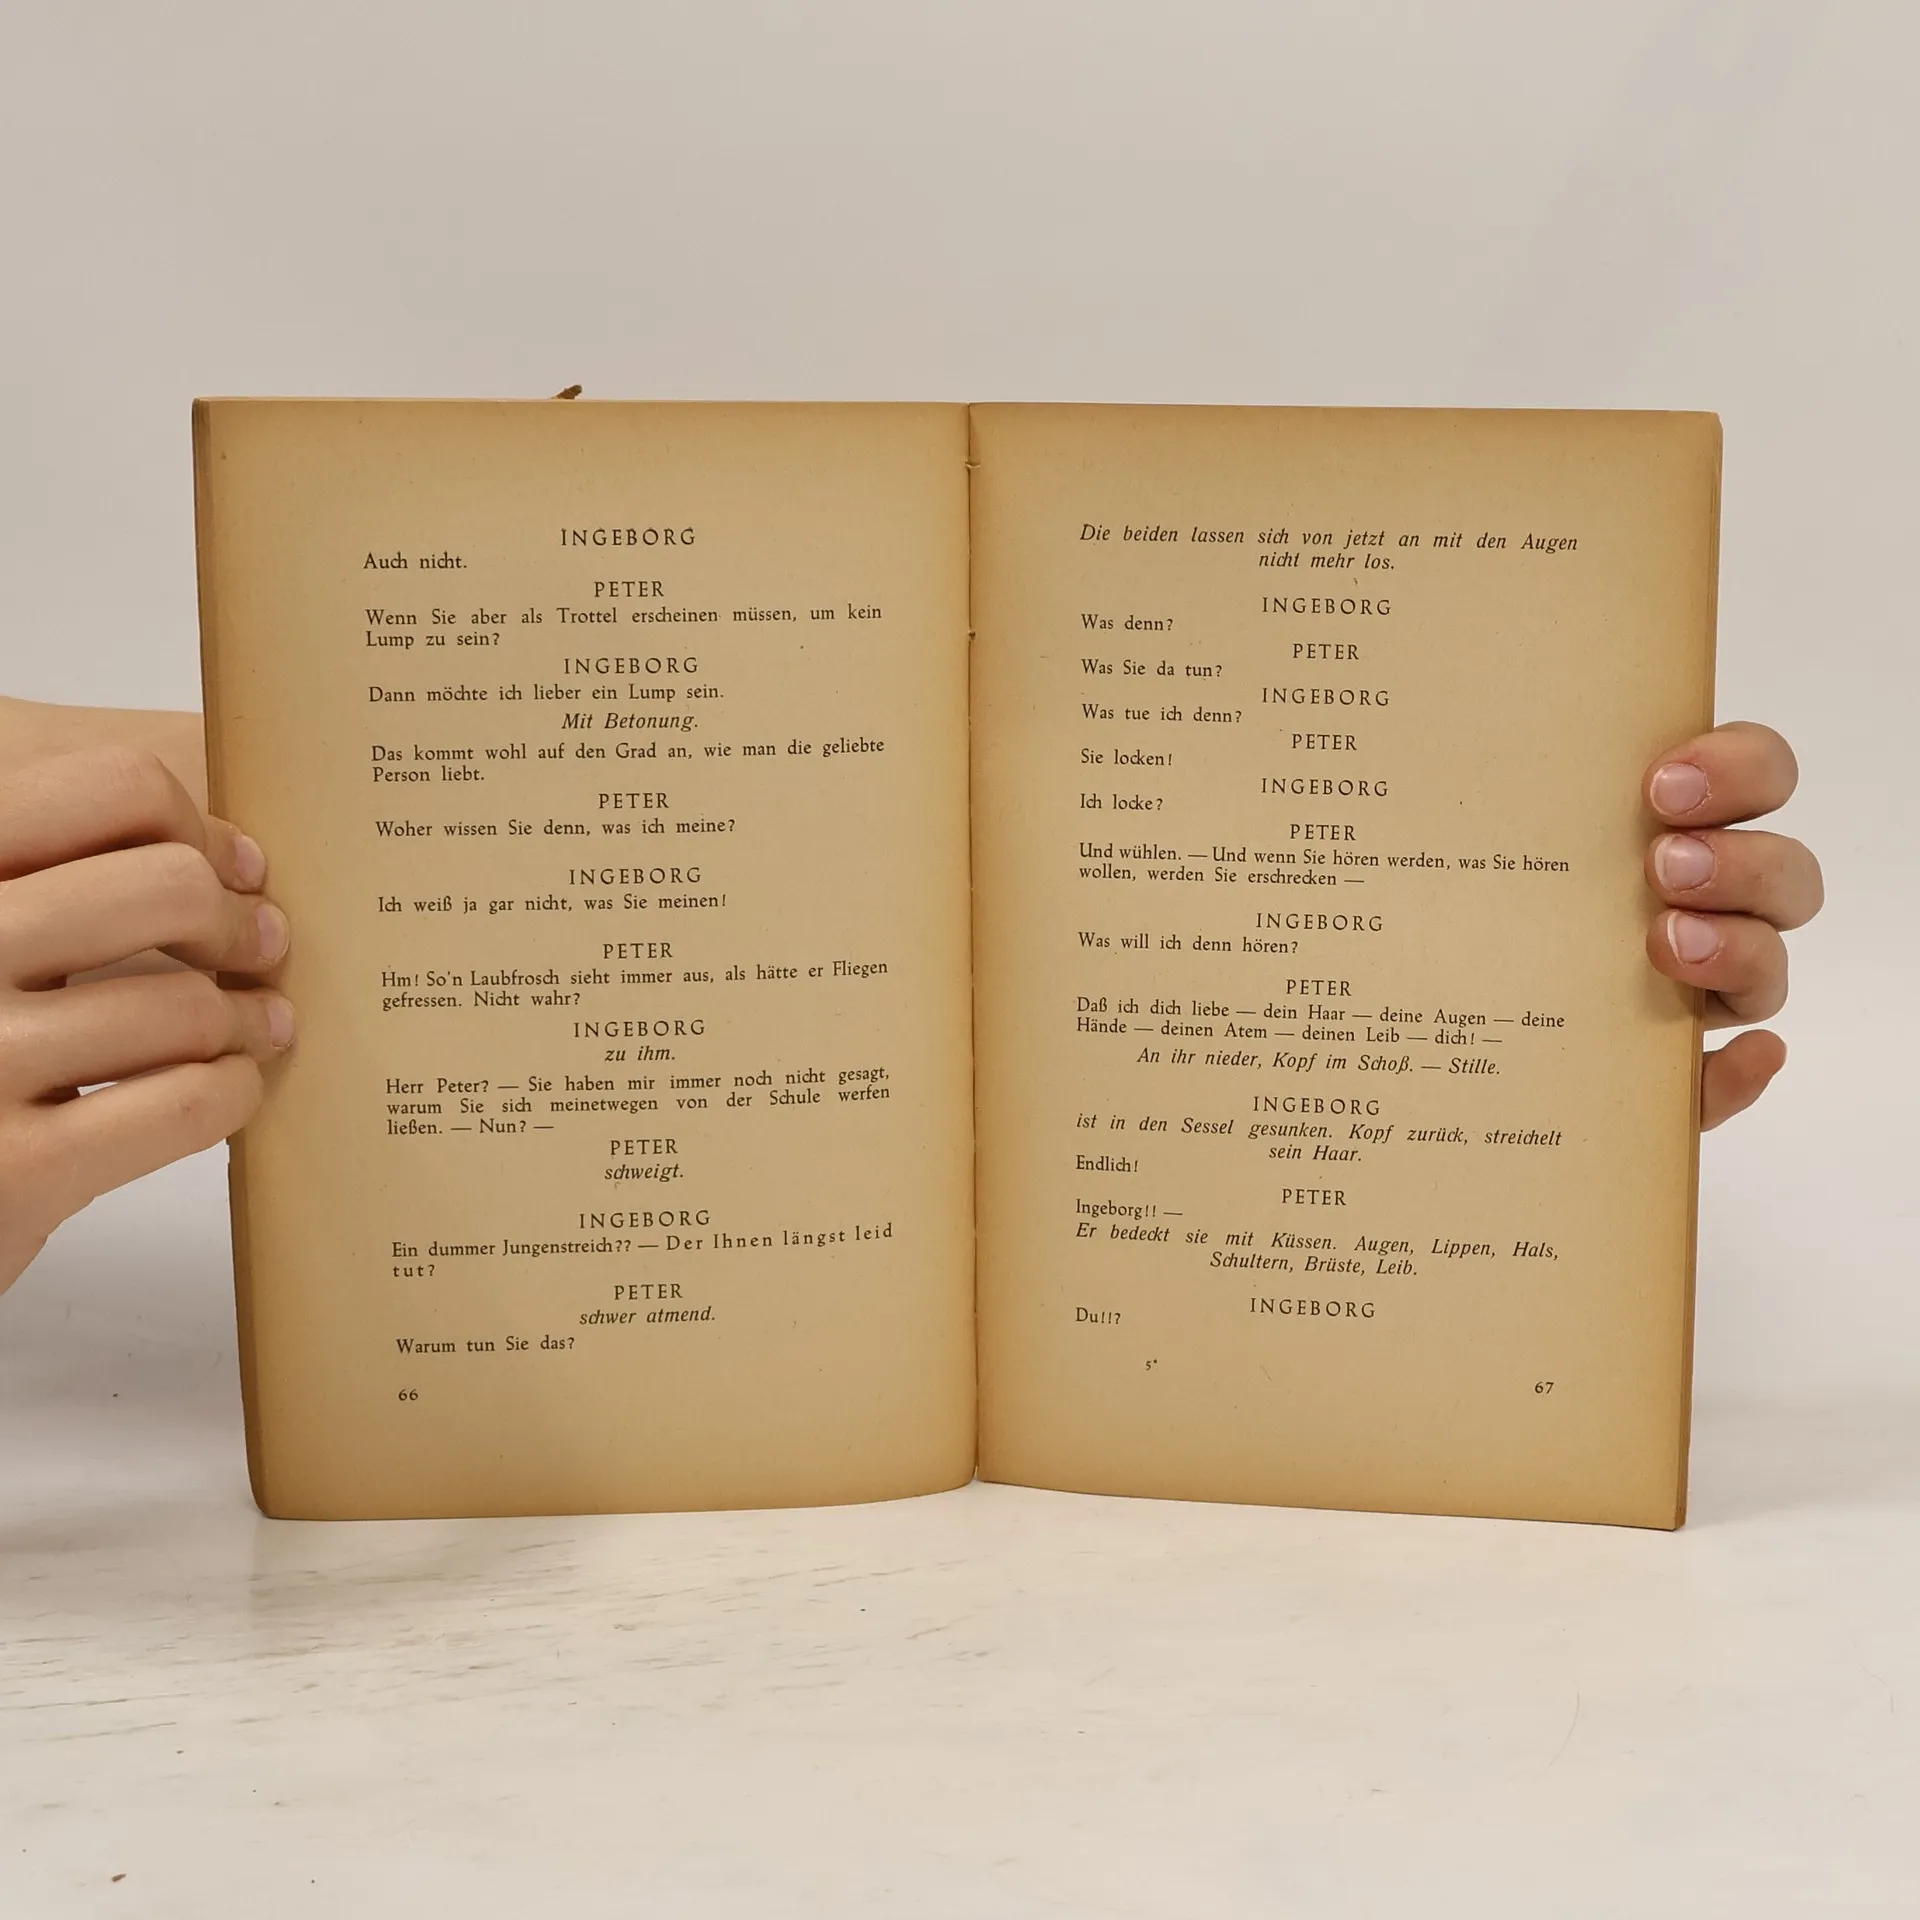 INGEBORG
Auch nicht.
PETER
Wenn Sie aber als Trottel erscheinen müssen, um kein
Lump zu sein?
INGEBORG
Dann möchte ich lieber ein Lump sein.
Mit Betonung.
Das kommt wohl auf den Grad an, wie man die geliebte
Person liebt.
PETER
Woher wissen Sie denn, was ich meine?
INGEBORG
Ich weiß ja gar nicht, was Sie meinen!
PETER
Hm! So'n Laubfrosch sieht immer aus, als hätte er Fliegen
gefressen. Nicht wahr?
INGEBORG
zu ihm.
Herr Peter? — Sie haben mir immer noch nicht gesagt,
warum Sie sich meinetwegen von der Schule werfen
ließen. — Nun? —
PETER
schweigt.
INGEBORG
Ein dummer Jungenstreich?? — Der Ihnen längst leid
tut?
PETER
schwer atmend.
Warum tun Sie das?
66
Die beiden lassen sich von jetzt an mit den Augen
nicht mehr los.
INGEBORG
Was denn?
PETER
Was Sie da tun?
INGEBORG
Was tue ich denn?
PETER
Sie locken!
INGEBORG
Ich locke?
PETER
Und wühlen. — Und wenn Sie hören werden, was Sie hören
wollen, werden Sie erschrecken —
INGEBORG
Was will ich denn hören?
PETER
Daß ich dich liebe — dein Haar — deine Augen — deine
Hände — deinen Atem — deinen Leib — dich! —
An ihr nieder, Kopf im Schoß. — Stille.
INGEBORG
ist in den Sessel gesunken. Kopf zurück, streichelt
sein Haar.
Endlich!
PETER
Ingeborg!! —
Er bedeckt sie mit Küssen. Augen, Lippen, Hals,
Schultern, Brüste, Leib.
INGEBORG
Du!!?
5*
67